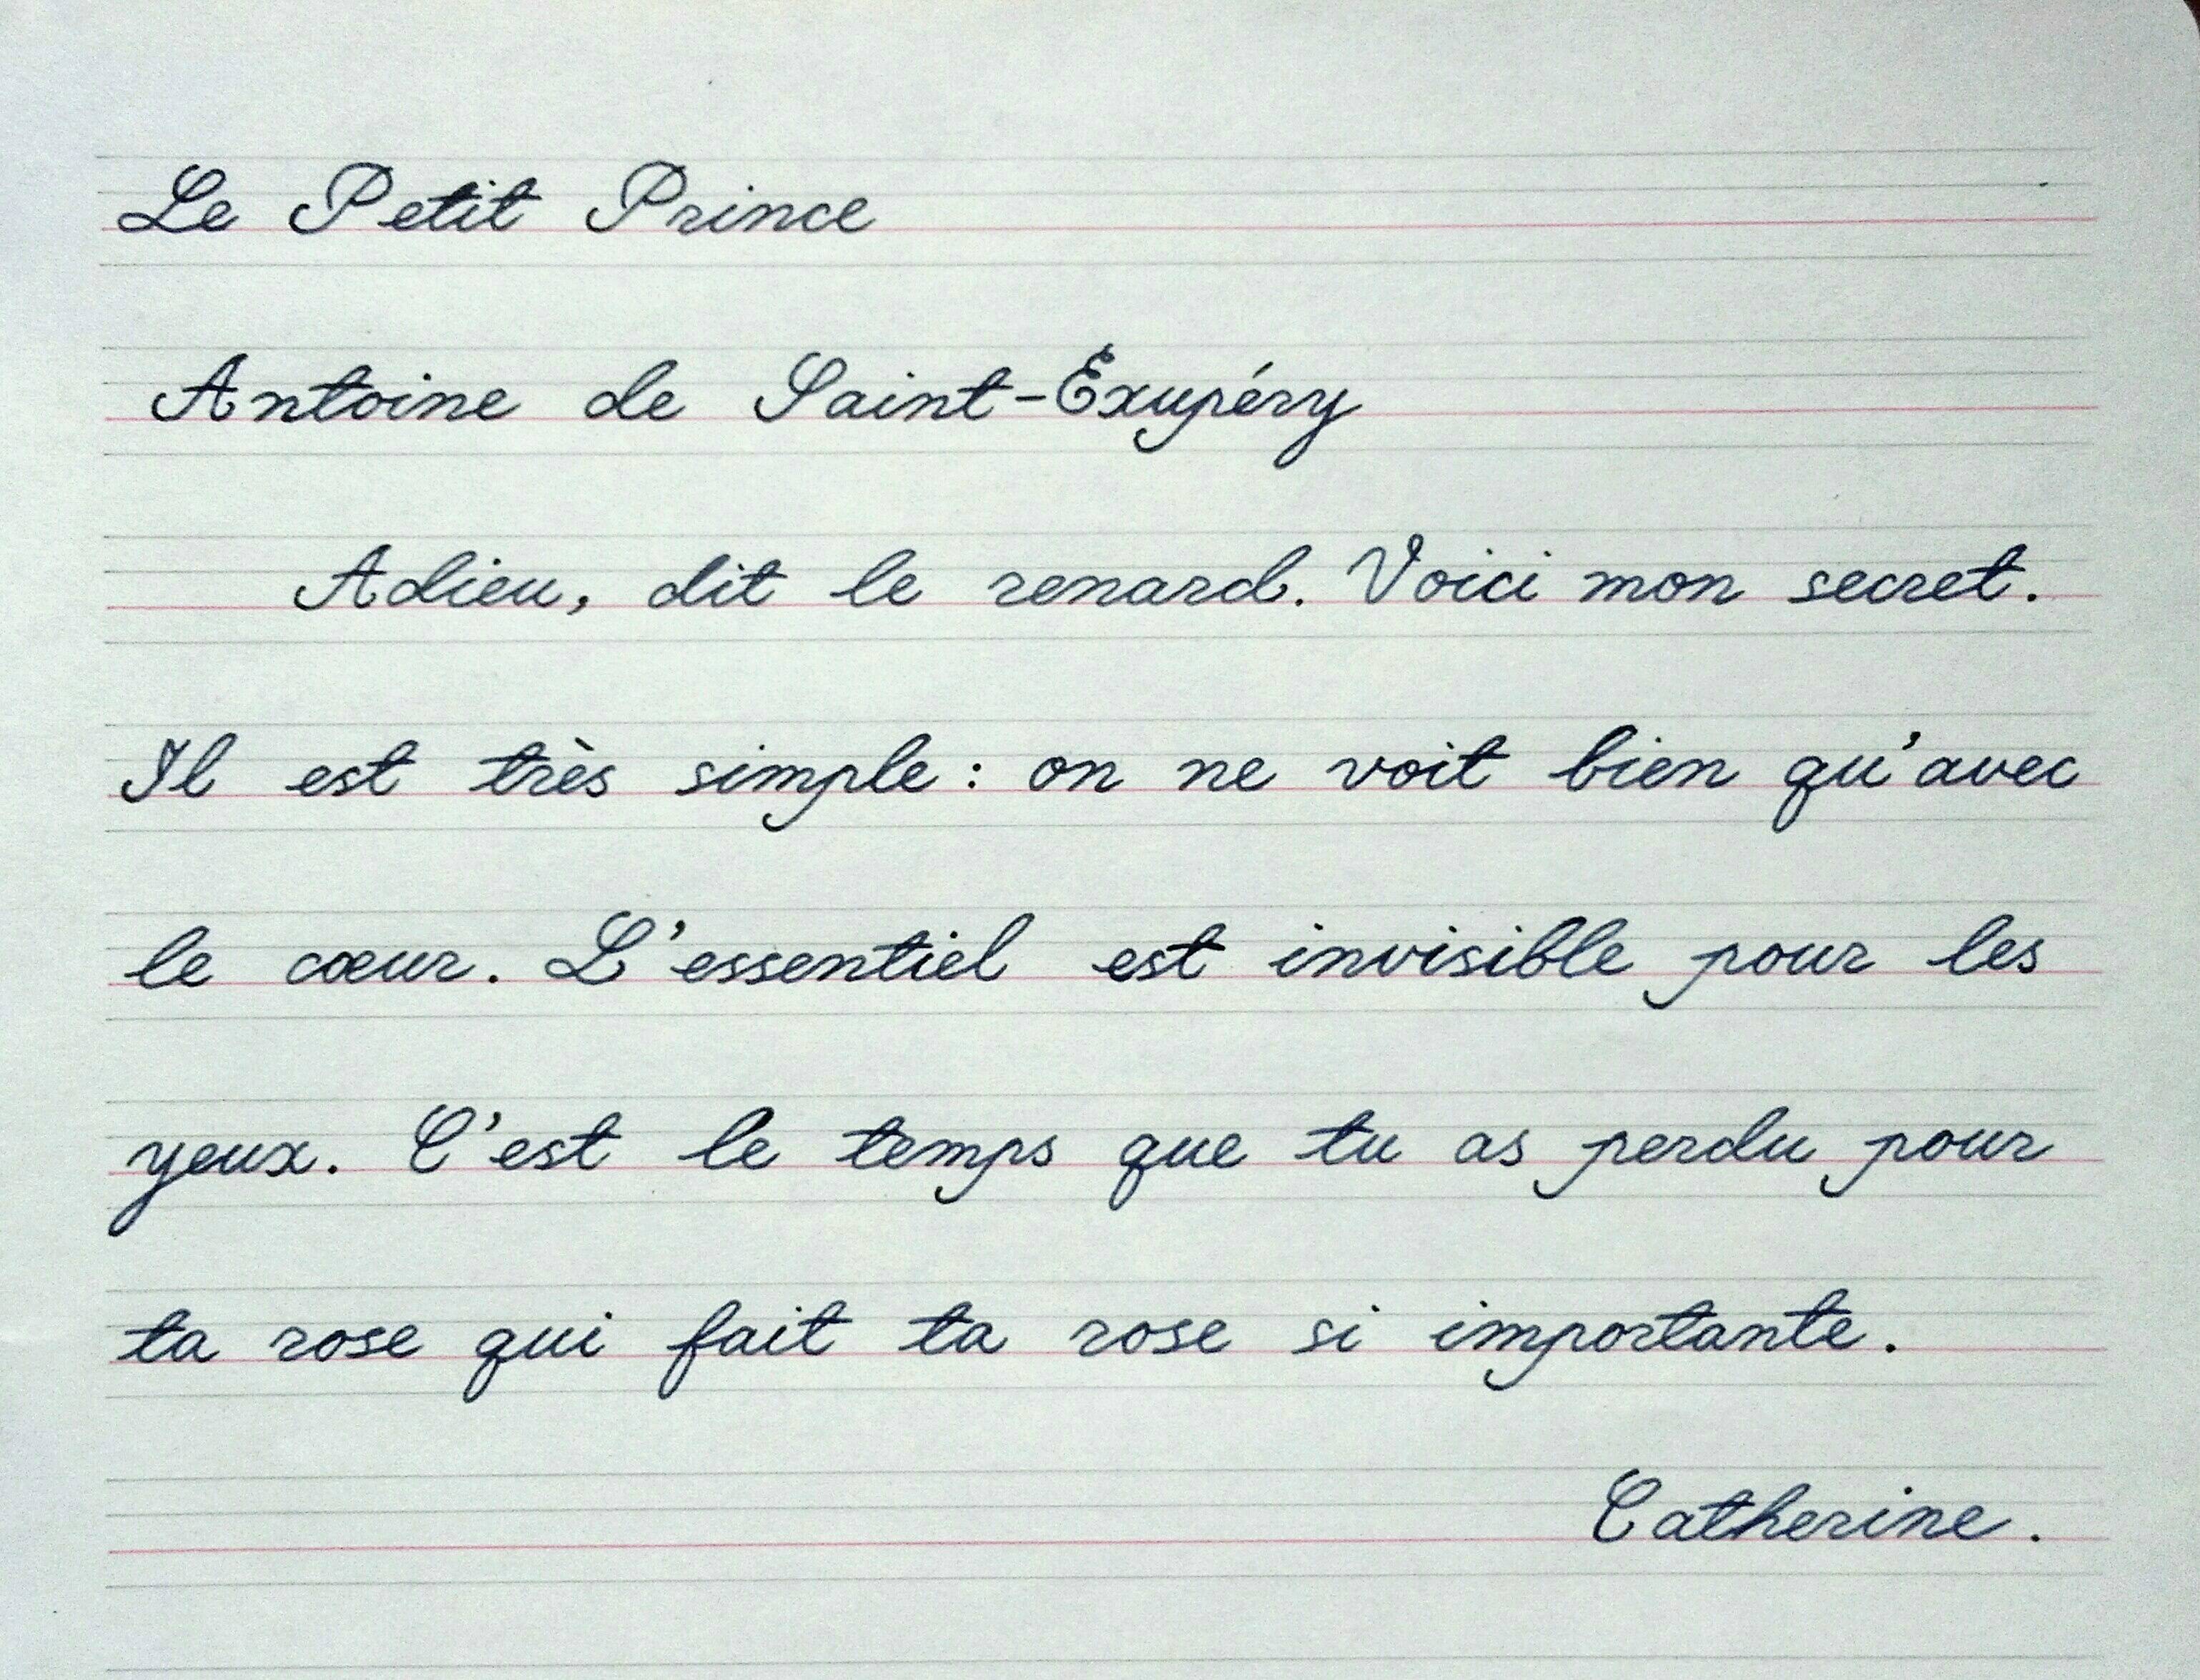 Le Petit Prince
Antoine de Saint-Exupéry
Adieu, dit le renard. Voici mon secret.
Il est très simple : on ne voit bien qu'avec
le cœur. L'essentiel est invisible pour les
yeux. C'est le temps que tu as perdu pour
ta rose qui fait ta rose si importante.
Catherine.